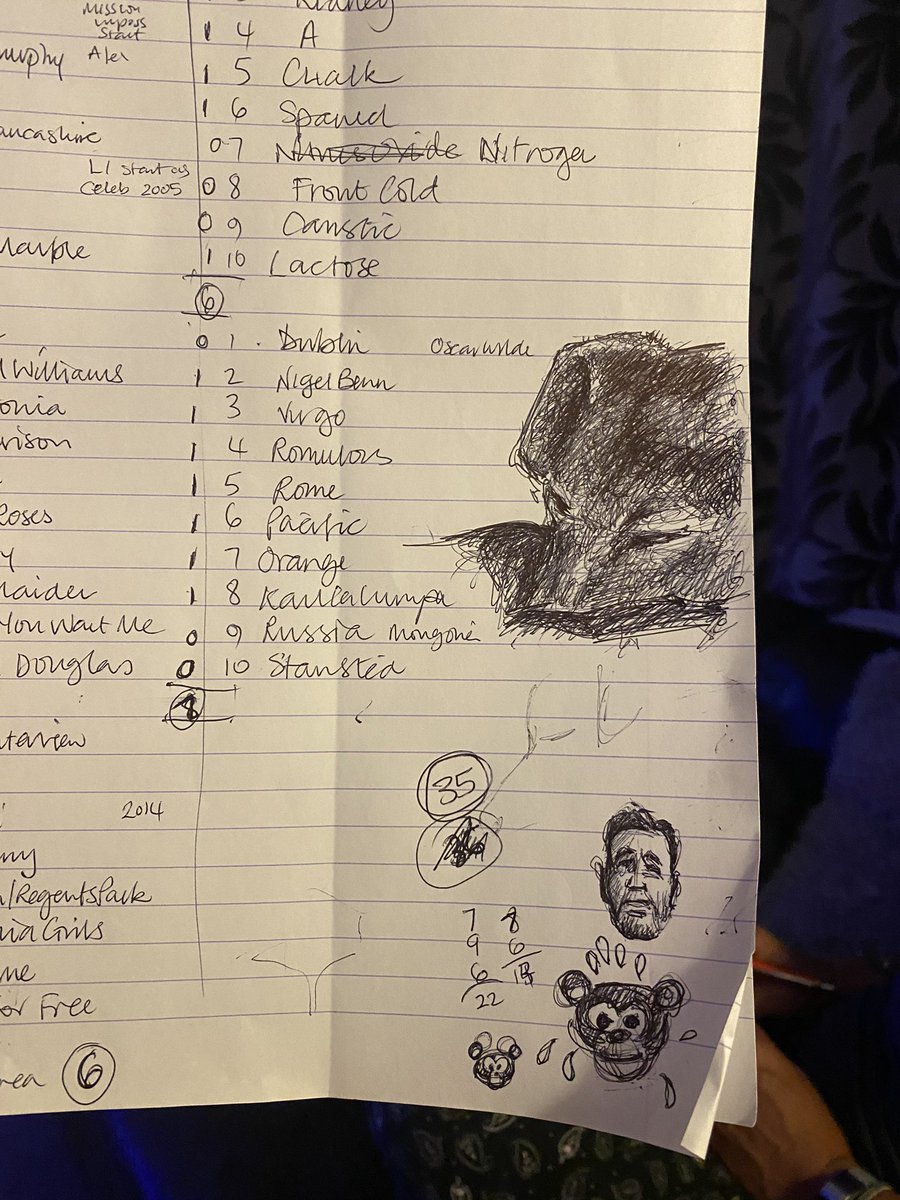 Mission
imposs
Start
Kidney
1 4 A
murphy Alex
1 5 Chalk
1 6 Spaniel
ancashire
0 7 Nitrogen
LI start as
Celeb 2005
0 8 Front Cold
0 9 Caustic
Marple
1 10 Lactose
6
0 1. Dublin Oscar Wilde
Williams
1 2 Nigel Benn
onia
1 3 Virgo
rrison
1 4 Romulous
1 5 Rome
Roses
1 6 Pacific
y
1 7 Orange
maiden
1 8 Kaulalumpa
You Want Me
0 9 Russia
Douglas
0 10 Stansted
8
nterview
35
2014
my
/Regents Park
ria Girls
me
For Free
7 8
9 6
6
22
rea 6